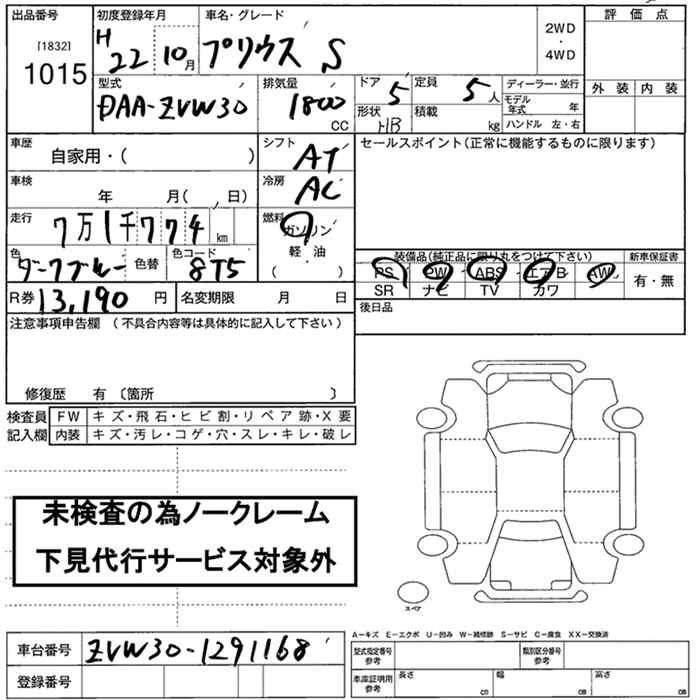 出品番号 初度登録年月 車名・グレード 評価点
[1832] 1015 H22 10月 プリウス S 2WD・4WD
型式 排気量 ドア 定員 ディーラー・並行 外装 内装
DAA-ZVW30 1800 CC 5 5人 モデル年式 年
形状 HB 積載 kg ハンドル 左・右
車歴 自家用・( ) シフト AT セールスポイント(正常に機能するものに限ります)
車検 年 月( 、日) 冷房 AC
走行 7万1千774 km 燃料 ガソリン
軽・油
( )
色 ダークブルー 色替 色コード 8T5
装備品(純正品に限り丸をつけて下さい) 新車保証書
PS PW ABS エアB AW 有・無
SR ナビ TV カワ
R券 13,190 円 名変期限 月 日 後日品
注意事項申告欄 (不具合内容等は具体的に記入して下さい)
修復歴 有 〔箇所 〕
検査員 FW キズ・飛石・ヒビ割・リペア跡・X要
記入欄 内装 キズ・汚レ・コゲ・穴・スレ・キレ・破レ
未検査の為ノークレーム
下見代行サービス対象外
スペア
A−キズ E−エクボ U−凹み W−補修跡 S−サビ C−腐食 XX−交換済
車台番号 ZVW30-1291168
型式指定番号 参考 類別区分番号 参考
登録番号
車庫証明用 参考 長さ cm 幅 cm 高さ cm